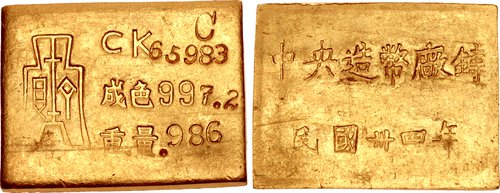 C
CK65983
成色997.2
重量.986
中央造幣廠鑄
民國卅四年